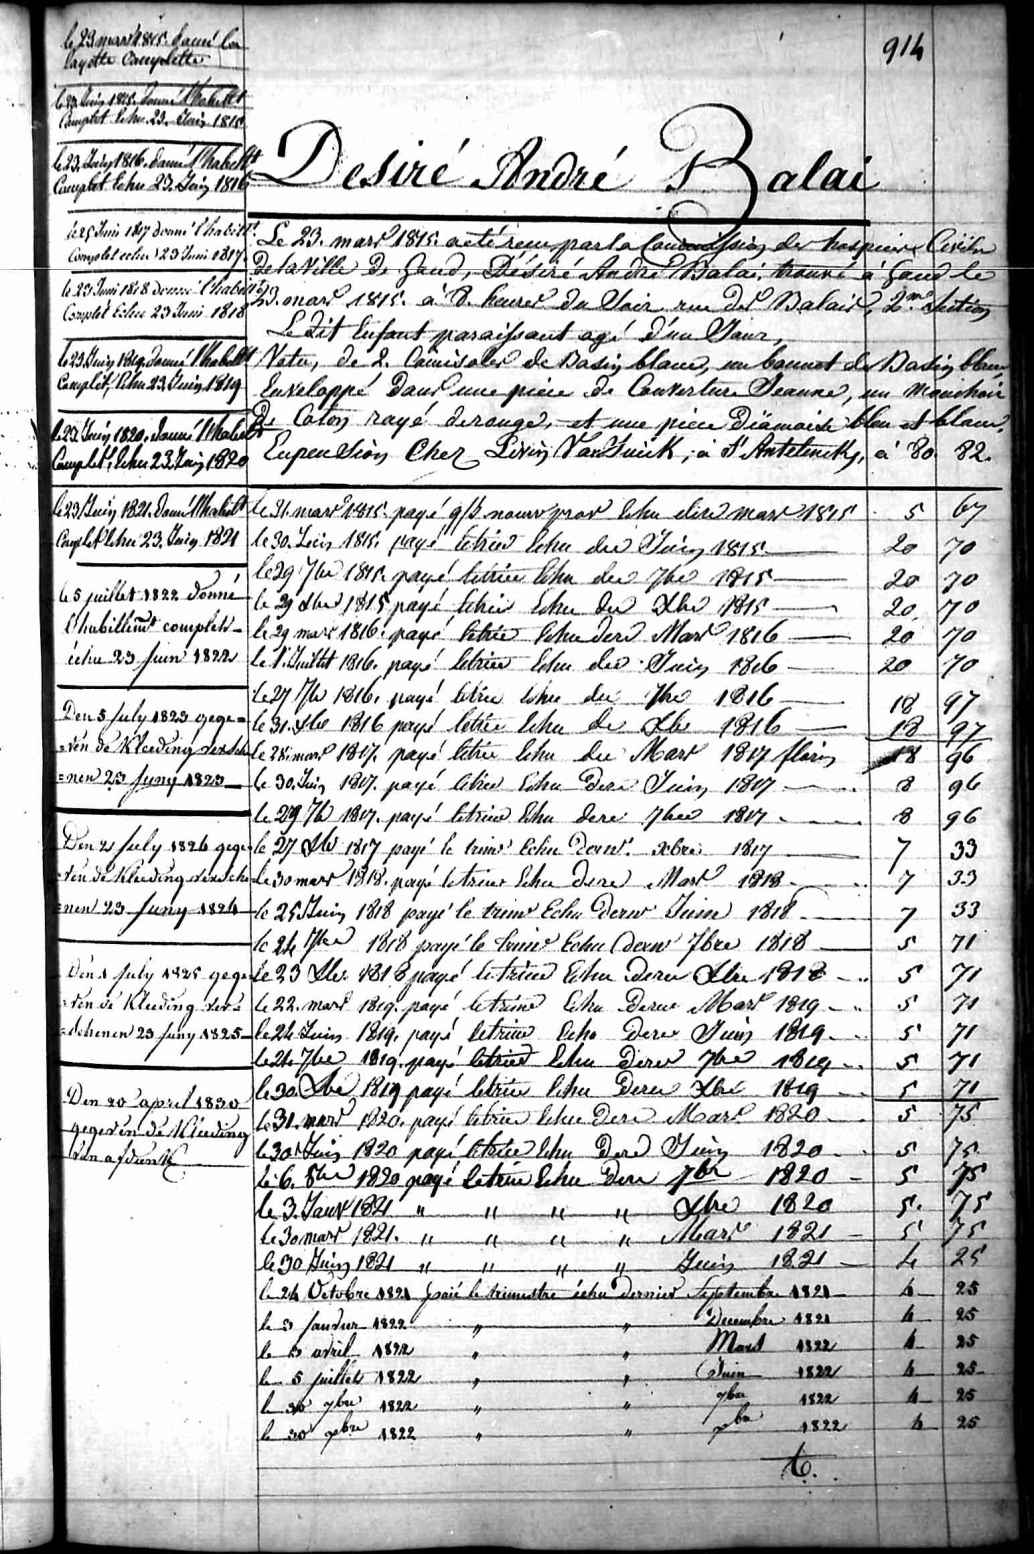 914
Desiré André Balai
Le 23. mars 1815. acté reçu par la Commission des hospices Civils
De la Ville de Gand, Désiré André Balai, trouvé à Gand le
23. mars 1815. à 8. heures du Soir rue des Balais, 2me Section
Le dit Enfant paraissant agé d'un Jour,
Vetu, de 2. Camisoles de Basin blanc, un bonnet de Basin blanc
Enveloppé dans une piece de Couverture Jeanne, un Mouchoir
De Coton rayé de rouge, et une piece Diamaise bleu et blanc.
En pension Chez Livin Van, à St Antelincks, à 80. 82.
le 23 mars 1815. donné la
layette Complette
le 23 Juin 1815. donné l'habillt
Complet Echu 23. Juin 1815
le 23. Juin 1816. donné l'habillt
Complet Echu 23. Juin 1816
le 25 Juin 1817 donné l'habillt
Complet echu 23 Juin 1817
le 23 Juin 1818 donné l'habillt
Complet Echu 23 Juin 1818
le 23 Juin 1819. donné l'habillt
Complet, Echu 23. Juin 1819
le 23 Juin 1820. donné l'habillt
Complet, Echu 23. Juin 1820
le 23 Juin 1821. donné l'habilt
Complet Echu 23. Juin 1821
le 5 juillet 1822 Donné
l'habillemt complet
échu 23 juin 1822
Den 5 July 1823 gege=
=ven de Kleeding versche
=nen 23 Juny 1823
Den 21 July 1824 gege
=ven de Kleeding versche
=nen 23 Juny 1824
Den 1 July 1825 gege
=ven de Kleeding vers=
=schenen 23 Juny 1825
Den 20 april 1830
gegeven de Kleeding
le 31. mars 1815. payé p/s nourr prov Echu dire mars 1815 5 67
le 30. Juin 1815. payé letrim Echu der Juin 1815 20 70
le 29 7bre 1815. payé letrim Echu der 7bre 1815 20 70
le 29 Xbre 1815 payé letrim Echu der Xbre 1815 20. 70
le 29 mars 1816. payé letrim Echu dere Mars 1816 20 70
le 1. Juillet 1816. payé letrim Echu der Juin 1816 20 70
le 27 7bre 1816. payé letrim Echu der 7bre 1816 18 97
le 31. Xbre 1816 payé letrim Echu de Xbre 1816 18 97
le 28. mars 1817. payé letrim Echu der Mars 1817 florins 8 96
le 30. Juin 1817. payé letrim Echu dere Juin 1817 8 96
le 29 7b 1817. payé letrim Echu dere 7bre 1817 8 96
le 27 Xbr 1817 payé le trimr Echu Dernr. xbre 1817 7 33
le 30 mars 1818. payé letrimr Echu dere Mars 1818 7 33
le 25 Juin 1818 payé le trimr Echu Dernr Juin 1818 7 33
le 24 7bre 1818 payé le trimr Echu Dernr 7bre 1818 5 71
le 23 Xbr. 1818 payé letrim Echu Derer Xbre 1818 5 71
le 22. mars 1819. payé letrim Echu Derer Mars 1819 5 71
le 24 Juin 1819. payé letrim Echu Derer Juin 1819 5 71
le 24 7bre 1819. payé letrim Echu Derer 7bre 1819 5 71
le 30. Xbre 1819 payé letrim Echu Derer Xbre 1819 5 71
le 31 mars 1820. payé letrim Echu Dere Mars 1820 5 75
le 30 Juin 1820 payé letrim Echu Dere Juin 1820 5 75.
le 6. 8bre 1820 payé letrim Echu Dere 7br 1820 5 75
le 3. Janr 1821 " " " " Xbre 1820 5. 75
le 30 mars 1821. " " " " Mars 1821 5 75
le 30 Juin 1821 " " " " Juin 1821 4 25
le 24 Octobre 1821 paié le trimestre échu dernier Septembre 1821 4 25
le 3 janvier 1822 " " Decembre 1821 4 25
le 3 avril 1822 " " Mars 1822 4 25
le 5 juillet 1822 " " Juin 1822 4 25
le 30 7bre 1822 " " 7bre 1822 4 25
le 30 xbre 1822 " " xbre 1822 4 25